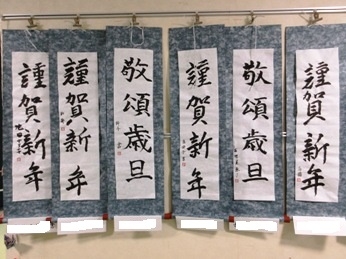 謹賀新年
謹賀新年
敬頌歳旦
謹賀新年
敬頌歳旦
謹賀新年